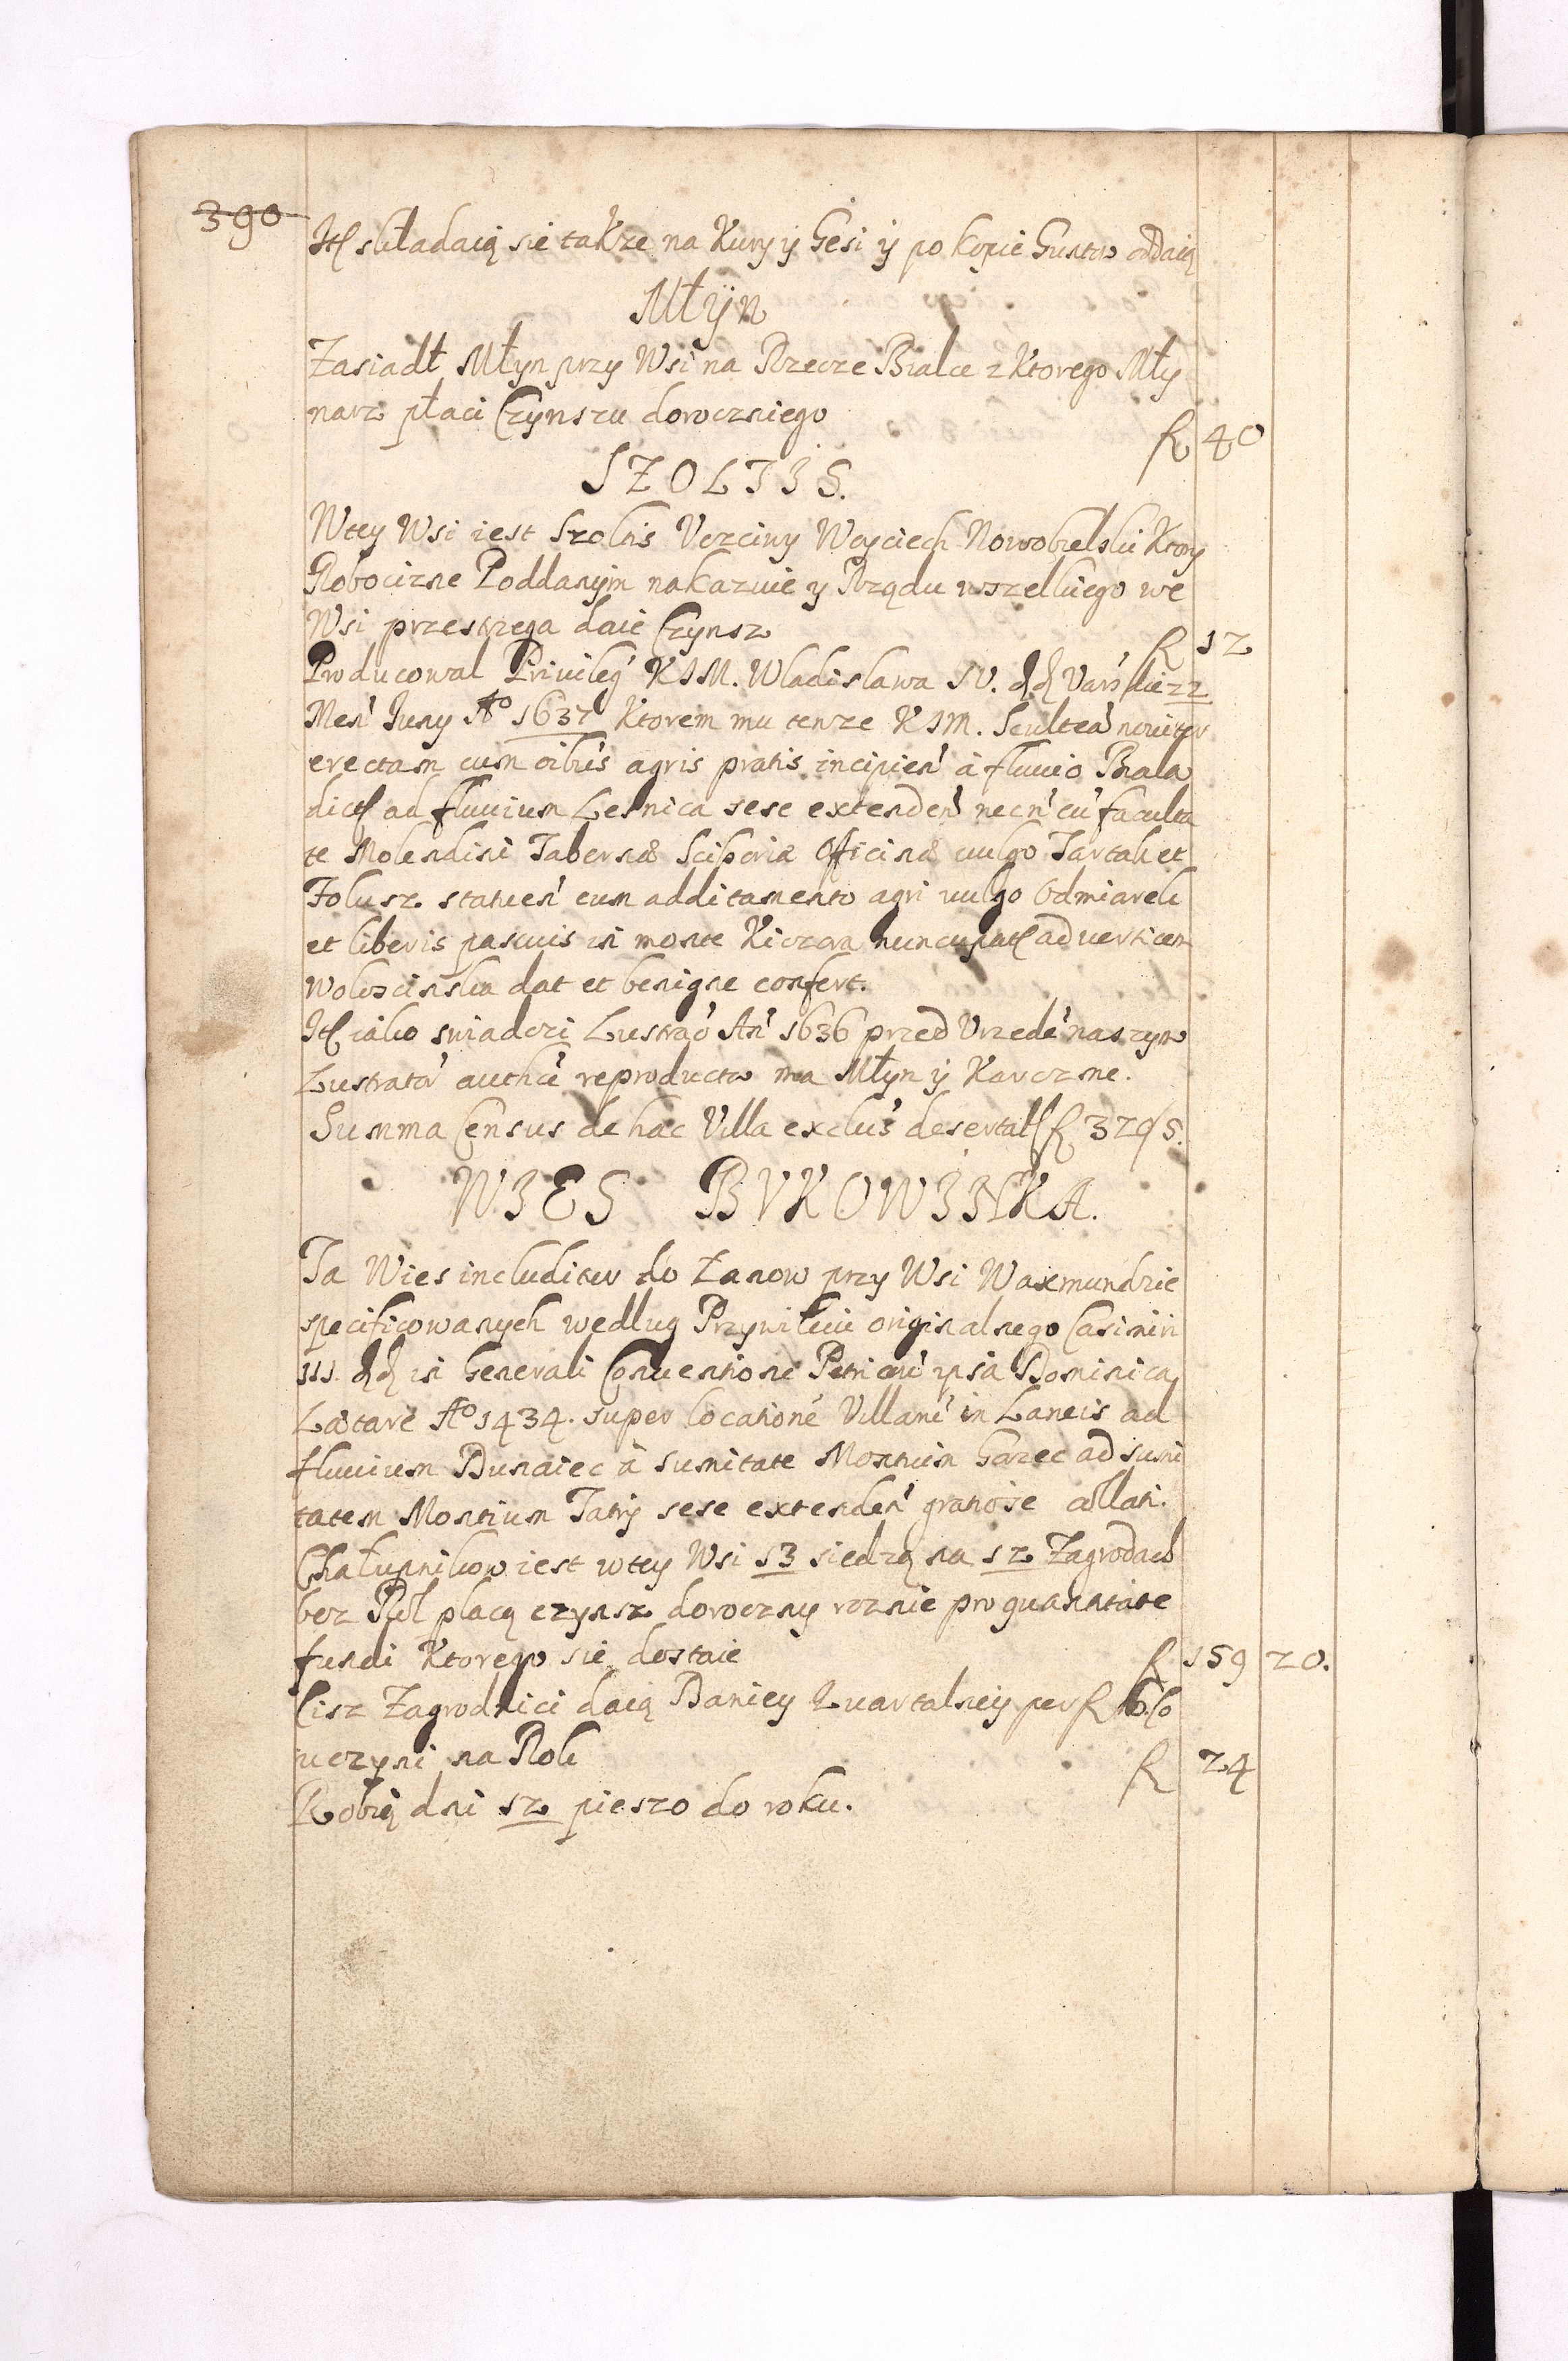 390
Itt składaią sie takze na Kury ÿ Gesi ÿ po kopie Guntow oddaią
Młÿn
Zasiadł Młyn przy Wsi na Rzecze Bialce z Ktorego Mły
narz płaci Czynszu doroczniego fl 40
SZOLTIS.
Wtey Wsi iest Szoltis Vczciwy Woyciech Nowobielski Ktory
Robocizne Poddanÿm nakazuie y Rządu wszelkiego we
Wsi przestrzega daie Czynsz fl 12
Producowal Privileg' KIM. Wladislawa IV. dd Vars' die 22
Men' Juny A° 1637 Ktorem mu tenze KIM. Scultea' noviter
erectam cum oibus agris pratis incipien' à fluvio Biala
dict ad fluvium Lesnica sese extenden' necn' cu' faculta
te Molendini Taberna Officina vulgo Tartak et
Folusz statuen' cum additamento agri vulgo Odmiarek
et liberis pascuis in monte Kiczora nuncupat ad verticem
Woloscinska dat et benigne confert.
Itt iako swiadczi Lustrao' An' 1636 przed Vrzede' naszym
Lustrator' reproducta ma Młyn ÿ Karczme.
Summa Census de hac Villa exclus' desertat fl 329/5.
WIES BVKOWINKA.
Ta Wies includitur do Łanow przy Wsi Waxmundzie
specificowanych wedlug Przywileiu originalnego Casimiri
III. dd in Generali Conventione Petricov' ipsa Dominica
Lætare A° 1434. super locatione' Villane' in Laneis ad
fluvium Dunaiec à sumitate Montium Gorzec ad sumi
tatem Montium Tatrÿ sese extenden' gratiose collati.
Chałupnikow iest wtey Wsi 13 siedzą na 12 Zagrodach
bez Rol placą czynsz doroczny roznie pro quantitate
fundi Ktorego sie dostaie fl 159 20.
Cisz Zagrodnici daią Daniey Kwartalneÿ per fl Co
uczyni na Rok fl 24
Robią dni 12 pieszo do roku.